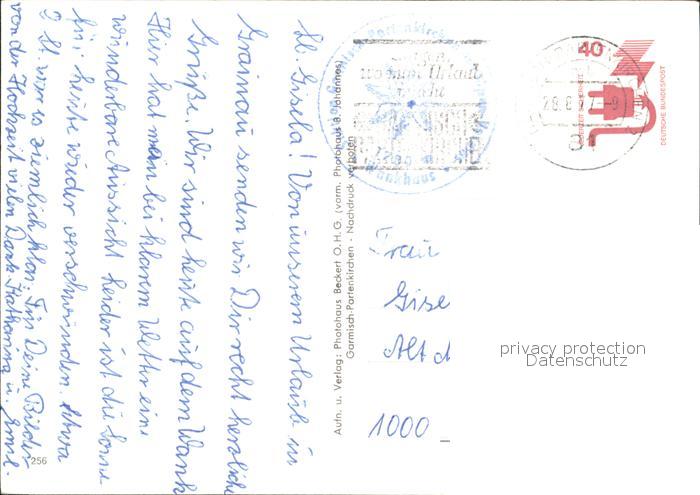 lb. Gisela! Von unserem Urlaub in
Grainau senden wir Dir recht herzliche
Grüße. Wir sind heute auf dem Wank
Hier hat man bei klarem Wetter eine
wunderbare Aussicht leider ist die Sonne
für heute wieder verschwunden. Etwa
9 U. war es ziemlich klar. Für Deine Bilder
von der Hochzeit vielen Dank Katharina u. Ernst.
256
Aufn. u. Verlag: Photohaus Beckert O.H.G. (vorm. Photohaus B. Johannes)
Garmisch-Partenkirchen - Nachdruck verboten
Garmisch-Partenkirchen
wo man Urlaub
macht
40
DEUTSCHE BUNDESPOST
Frau
Gise
Alt d
1000
privacy protection
Datenschutz